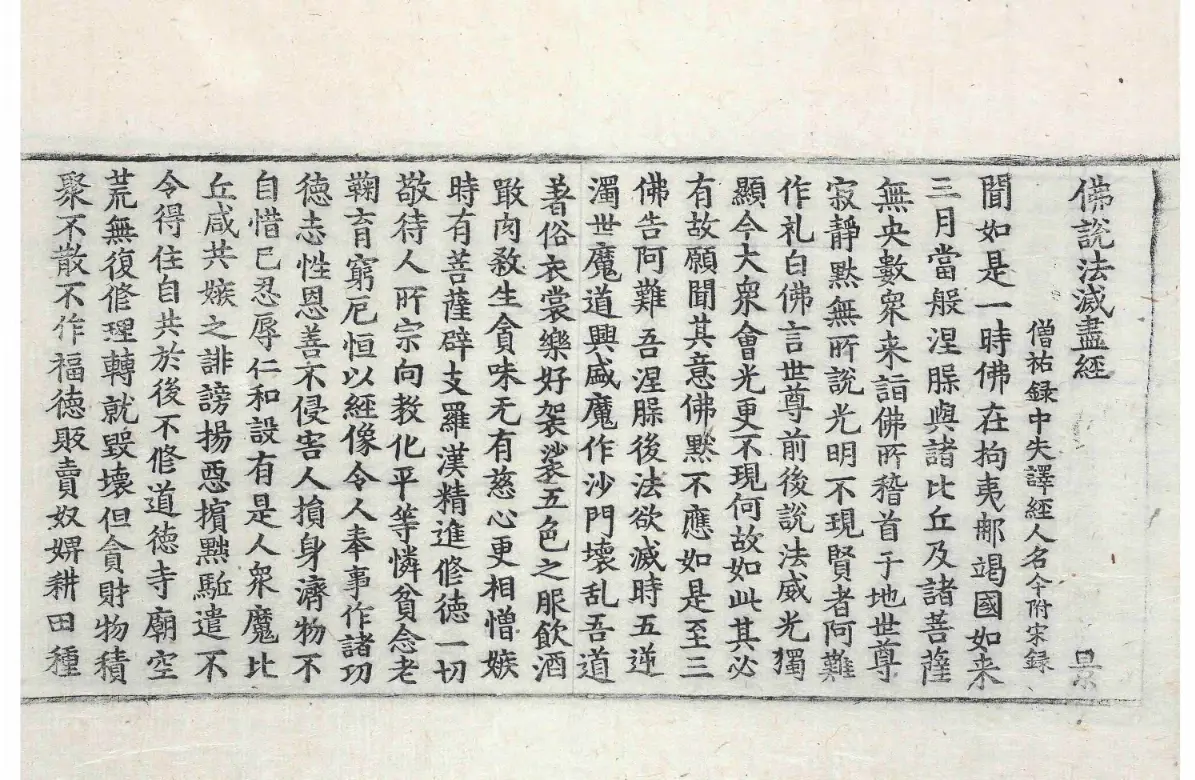 佛說法滅盡經 景
僧祐録中失譯經人名今附宋録
聞如是一時佛在拘夷那竭國如来
三月當般涅槃與諸比丘及諸菩薩
無央數衆来詣佛所稽首于地世尊
寂静黙無所説光明不現賢者阿難
作礼白佛言世尊前後説法威光獨
顯今大衆會光更不現何故如此其必
有故願聞其意佛黙不應如是至三
佛告阿難吾涅槃後法欲滅時五逆
濁世魔道興盛魔作沙門壊乱吾道
著俗衣裳樂好袈裟五色之服飲酒
噉肉殺生貪味无有慈心更相憎嫉
時有菩薩辟支羅漢精進修徳一切
敬待人所宗向教化平等憐貧念老
鞠育窮厄恒以經像令人奉事作諸功
徳志性恩善不侵害人損身濟物不
自惜已忍辱仁和設有是人衆魔比
丘咸共嫉之誹謗揚惡擯黜駈遣不
令得住自共於後不修道徳寺廟空
荒無復修理轉就毀壊但貪財物積
聚不散不作福徳販賣奴婢耕田種